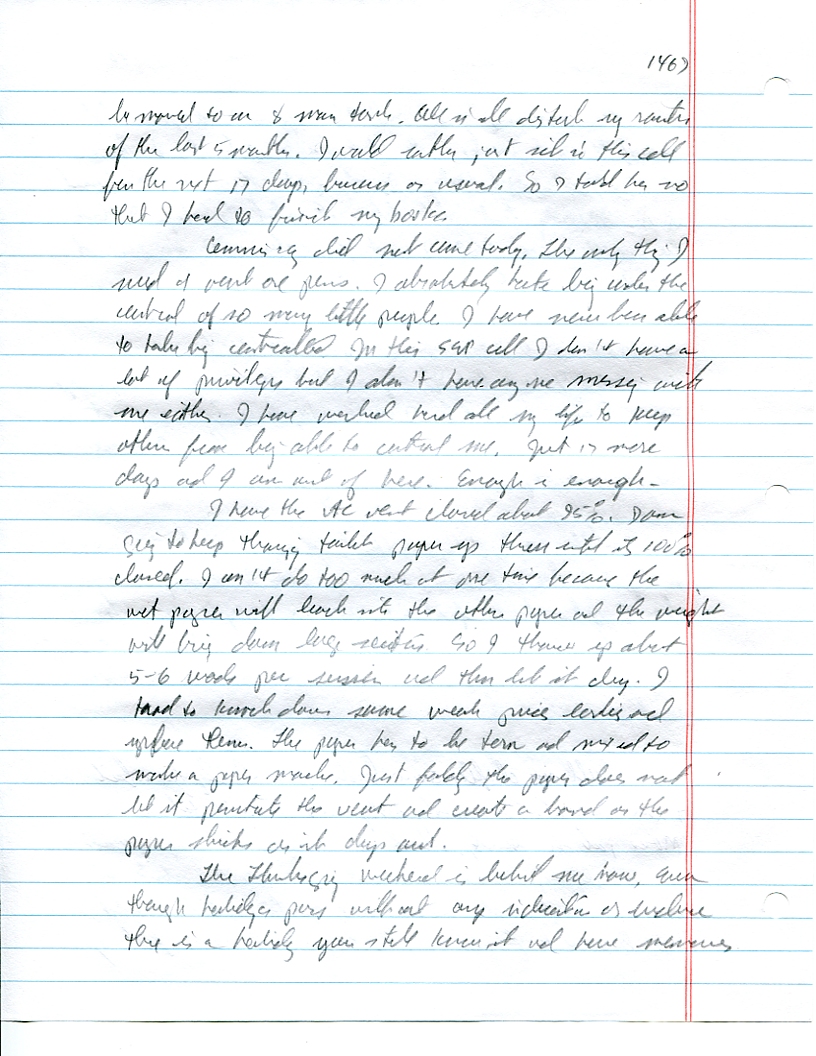 1467
be moved to an 8 man tank. All will disturb my routine
of the last 5 months. I would rather just sit in this cell
for the next 17 days, business as usual. So I told her no
that I had to finish my books.
Commissary did not come today. The only thing I
need or want are pens. I absolutely hate being under the
control of so many little people. I have never been able
to take being controlled. In this cell I don't have a
lot of privileges but I don't have anyone messing with
me either. I have worked hard all my life to keep
others from being able to control me. Just 17 more
days and I am out of here. Enough is enough-
I have the AC vent closed about 95%. I am
going to keep throwing toilet paper up there until its 100%
closed. I can't do too much at one time because the
wet paper will leach into the other paper and the weight
will bring down large sections. So I throw up about
5-6 wads per session and then let it dry. I
had to knock down some weak pieces earlier and
replace them. The paper has to be torn and mixed to
make a paper mache. Just folding the paper does not
let it penetrate the vent and create a bond as the
paper sticks as it drys out.
The Thanksgiving weekend is behind me now, even
though holidays pass without any indication or
there is a holiday you still know it and have memories